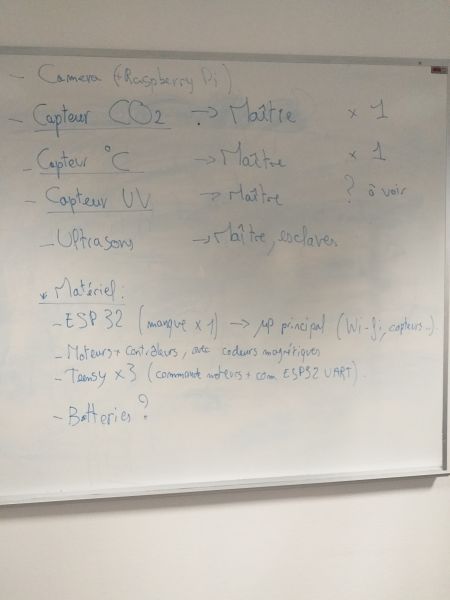 - Camera (+Raspberry Pi)
- Capteur CO2 -> Maître x 1
- Capteur °C -> Maître x 1
- Capteur UV -> Maître ? à voir
- Ultrasons -> Maître, esclaves
* Matériel:
- ESP32 (manque x 1) -> µP principal (Wi-fi, capteurs..)
- Moteurs + contrôleurs, avec codeurs magnétiques
- Teensy x3 (commande moteurs + com ESP32 UART).
- Batteries ?